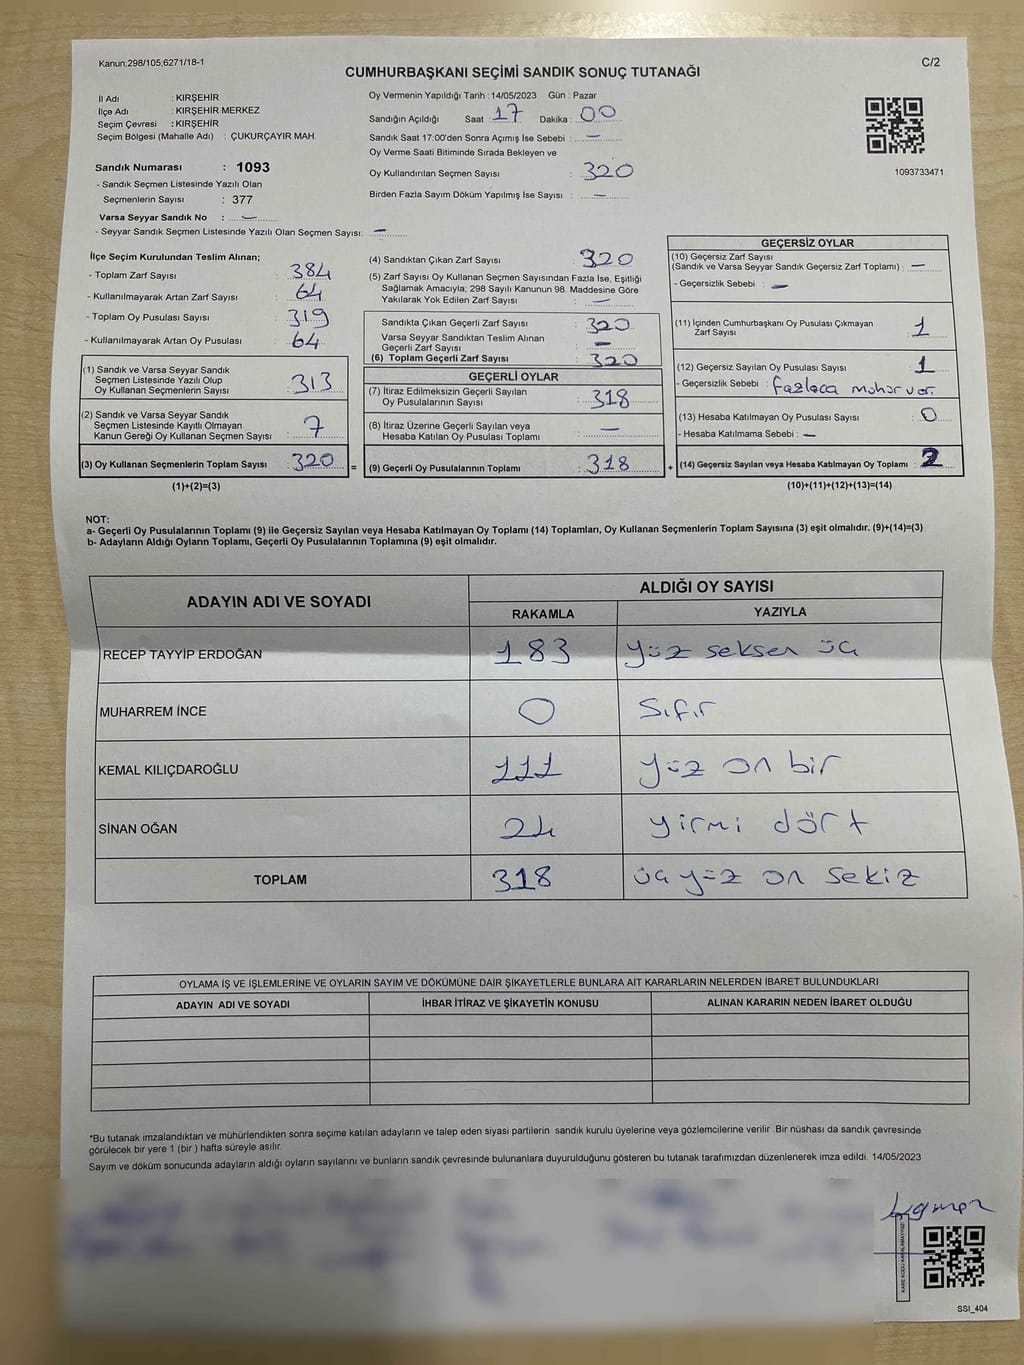 Kanun;298/105;6271/18-1
C/2
CUMHURBAŞKANI SEÇİMİ SANDIK SONUÇ TUTANAĞI
İl Adı : KIRŞEHİR
İlçe Adı : KIRŞEHİR MERKEZ
Seçim Çevresi : KIRŞEHİR
Seçim Bölgesi (Mahalle Adı) : ÇUKURÇAYIR MAH.
Sandık Numarası : 1093
- Sandık Seçmen Listesinde Yazılı Olan
Seçmenlerin Sayısı : 377
Varsa Seyyar Sandık No : —
- Seyyar Sandık Seçmen Listesinde Yazılı Olan Seçmen Sayısı: —
Oy Vermenin Yapıldığı Tarih : 14/05/2023 Gün : Pazar
Sandığın Açıldığı Saat : 17 Dakika : 00
Sandık Saat 17:00'den Sonra Açımış İse Sebebi : —
Oy Verme Saati Bitiminde Sırada Bekleyen ve
Oy Kullandırılan Seçmen Sayısı : 320
Birden Fazla Sayım Döküm Yapılmış İse Sayısı : —
1093733471
İlçe Seçim Kurulundan Teslim Alınan;
- Toplam Zarf Sayısı : 384
- Kullanılmayarak Artan Zarf Sayısı : 64
- Toplam Oy Pusulası Sayısı : 319
- Kullanılmayarak Artan Oy Pusulası : 64
(1) Sandık ve Varsa Seyyar Sandık
Seçmen Listesinde Yazılı Olup
Oy Kullanan Seçmenlerin Sayısı : 313
(2) Sandık ve Varsa Seyyar Sandık
Seçmen Listesinde Kayıtlı Olmayan
Kanun Gereği Oy Kullanan Seçmen Sayısı : 7
(3) Oy Kullanan Seçmenlerin Toplam Sayısı : 320 =
(1)+(2)=(3)
(4) Sandıktan Çıkan Zarf Sayısı : 320
(5) Zarf Sayısı Oy Kullanan Seçmen Sayısından Fazla İse, Eşitliği
Sağlamak Amacıyla; 298 Sayılı Kanunun 98. Maddesine Göre
Yakılarak Yok Edilen Zarf Sayısı : —
Sandıkta Çıkan Geçerli Zarf Sayısı : 320
Varsa Seyyar Sandıktan Teslim Alınan
Geçerli Zarf Sayısı : —
(6) Toplam Geçerli Zarf Sayısı : 320
GEÇERLİ OYLAR
(7) İtiraz Edilmeksizin Geçerli Sayılan
Oy Pusulalarının Sayısı : 318
(8) İtiraz Üzerine Geçerli Sayılan veya
Hesaba Katılan Oy Pusulası Toplamı : —
(9) Geçerli Oy Pusulalarının Toplamı : 318 +
GEÇERSİZ OYLAR
(10) Geçersiz Zarf Sayısı
(Sandık ve Varsa Seyyar Sandık Geçersiz Zarf Toplamı) : —
- Geçersizlik Sebebi : —
(11) İçinden Cumhurbaşkanı Oy Pusulası Çıkmayan
Zarf Sayısı : 1
(12) Geçersiz Sayılan Oy Pusulası Sayısı : 1
- Geçersizlik Sebebi : fazlaca mühür var.
(13) Hesaba Katılmayan Oy Pusulası Sayısı : 0
- Hesaba Katılmama Sebebi : —
(14) Geçersiz Sayılan veya Hesaba Katılmayan Oy Toplamı : 2
(10)+(11)+(12)+(13)=(14)
NOT:
a- Geçerli Oy Pusulalarının Toplamı (9) ile Geçersiz Sayılan veya Hesaba Katılmayan Oy Toplamı (14) Toplamları, Oy Kullanan Seçmenlerin Toplam Sayısına (3) eşit olmalıdır. (9)+(14)=(3)
b- Adayların Aldığı Oyların Toplamı, Geçerli Oy Pusulalarının Toplamına (9) eşit olmalıdır.
ADAYIN ADI VE SOYADI
ALDIĞI OY SAYISI
RAKAMLA YAZIYLA
RECEP TAYYİP ERDOĞAN 183 yüz seksen üç
MUHARREM İNCE 0 Sıfır
KEMAL KILIÇDAROĞLU 111 yüz on bir
SİNAN OĞAN 24 yirmi dört
TOPLAM 318 üç yüz on sekiz
OYLAMA İŞ VE İŞLEMLERİNE VE OYLARIN SAYIM VE DÖKÜMÜNE DAİR ŞİKAYETLERLE BUNLARA AİT KARARLARIN NELERDEN İBARET BULUNDUKLARI
ADAYIN ADI VE SOYADI İHBAR İTİRAZ VE ŞİKAYETİN KONUSU ALINAN KARARIN NEDEN İBARET OLDUĞU
*Bu tutanak imzalandıktan ve mühürlendikten sonra seçime katılan adayların ve talep eden siyasi partilerin sandık kurulu üyelerine veya gözlemcilerine verilir .Bir nüshası da sandık çevresinde
görülecek bir yere 1 (bir ) hafta süreyle asılır.
Sayım ve döküm sonucunda adayların aldığı oyların sayılarını ve bunların sandık çevresinde bulunanlara duyurulduğunu gösteren bu tutanak tarafımızdan düzenlenerek imza edildi. 14/05/2023
SSI_404